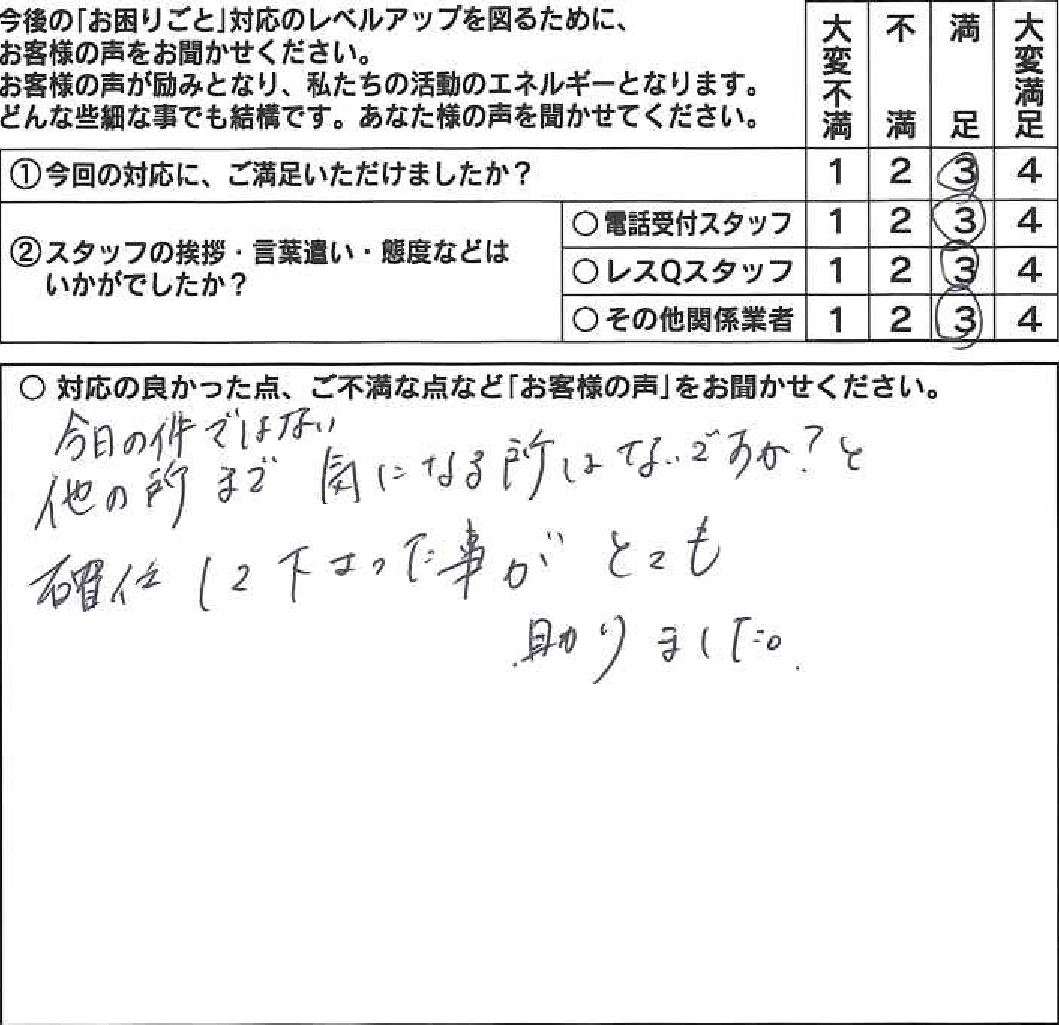 今後の「お困りごと」対応のレベルアップを図るために、
お客様の声をお聞かせください。
お客様の声が励みとなり、私たちの活動のエネルギーとなります。
どんな些細な事でも結構です。あなた様の声を聞かせてください。
大変不満 不満 満足 大変満足
①今回の対応に、ご満足いただけましたか? 1 2 3 4
②スタッフの挨拶・言葉遣い・態度などは
いかがでしたか?
○電話受付スタッフ 1 2 3 4
○レスQスタッフ 1 2 3 4
○その他関係業者 1 2 3 4
○ 対応の良かった点、ご不満な点など「お客様の声」をお聞かせください。
今日の件ではない
他の所まで 気になる所はないですか?と
確任して下さった事が とても
助りました。